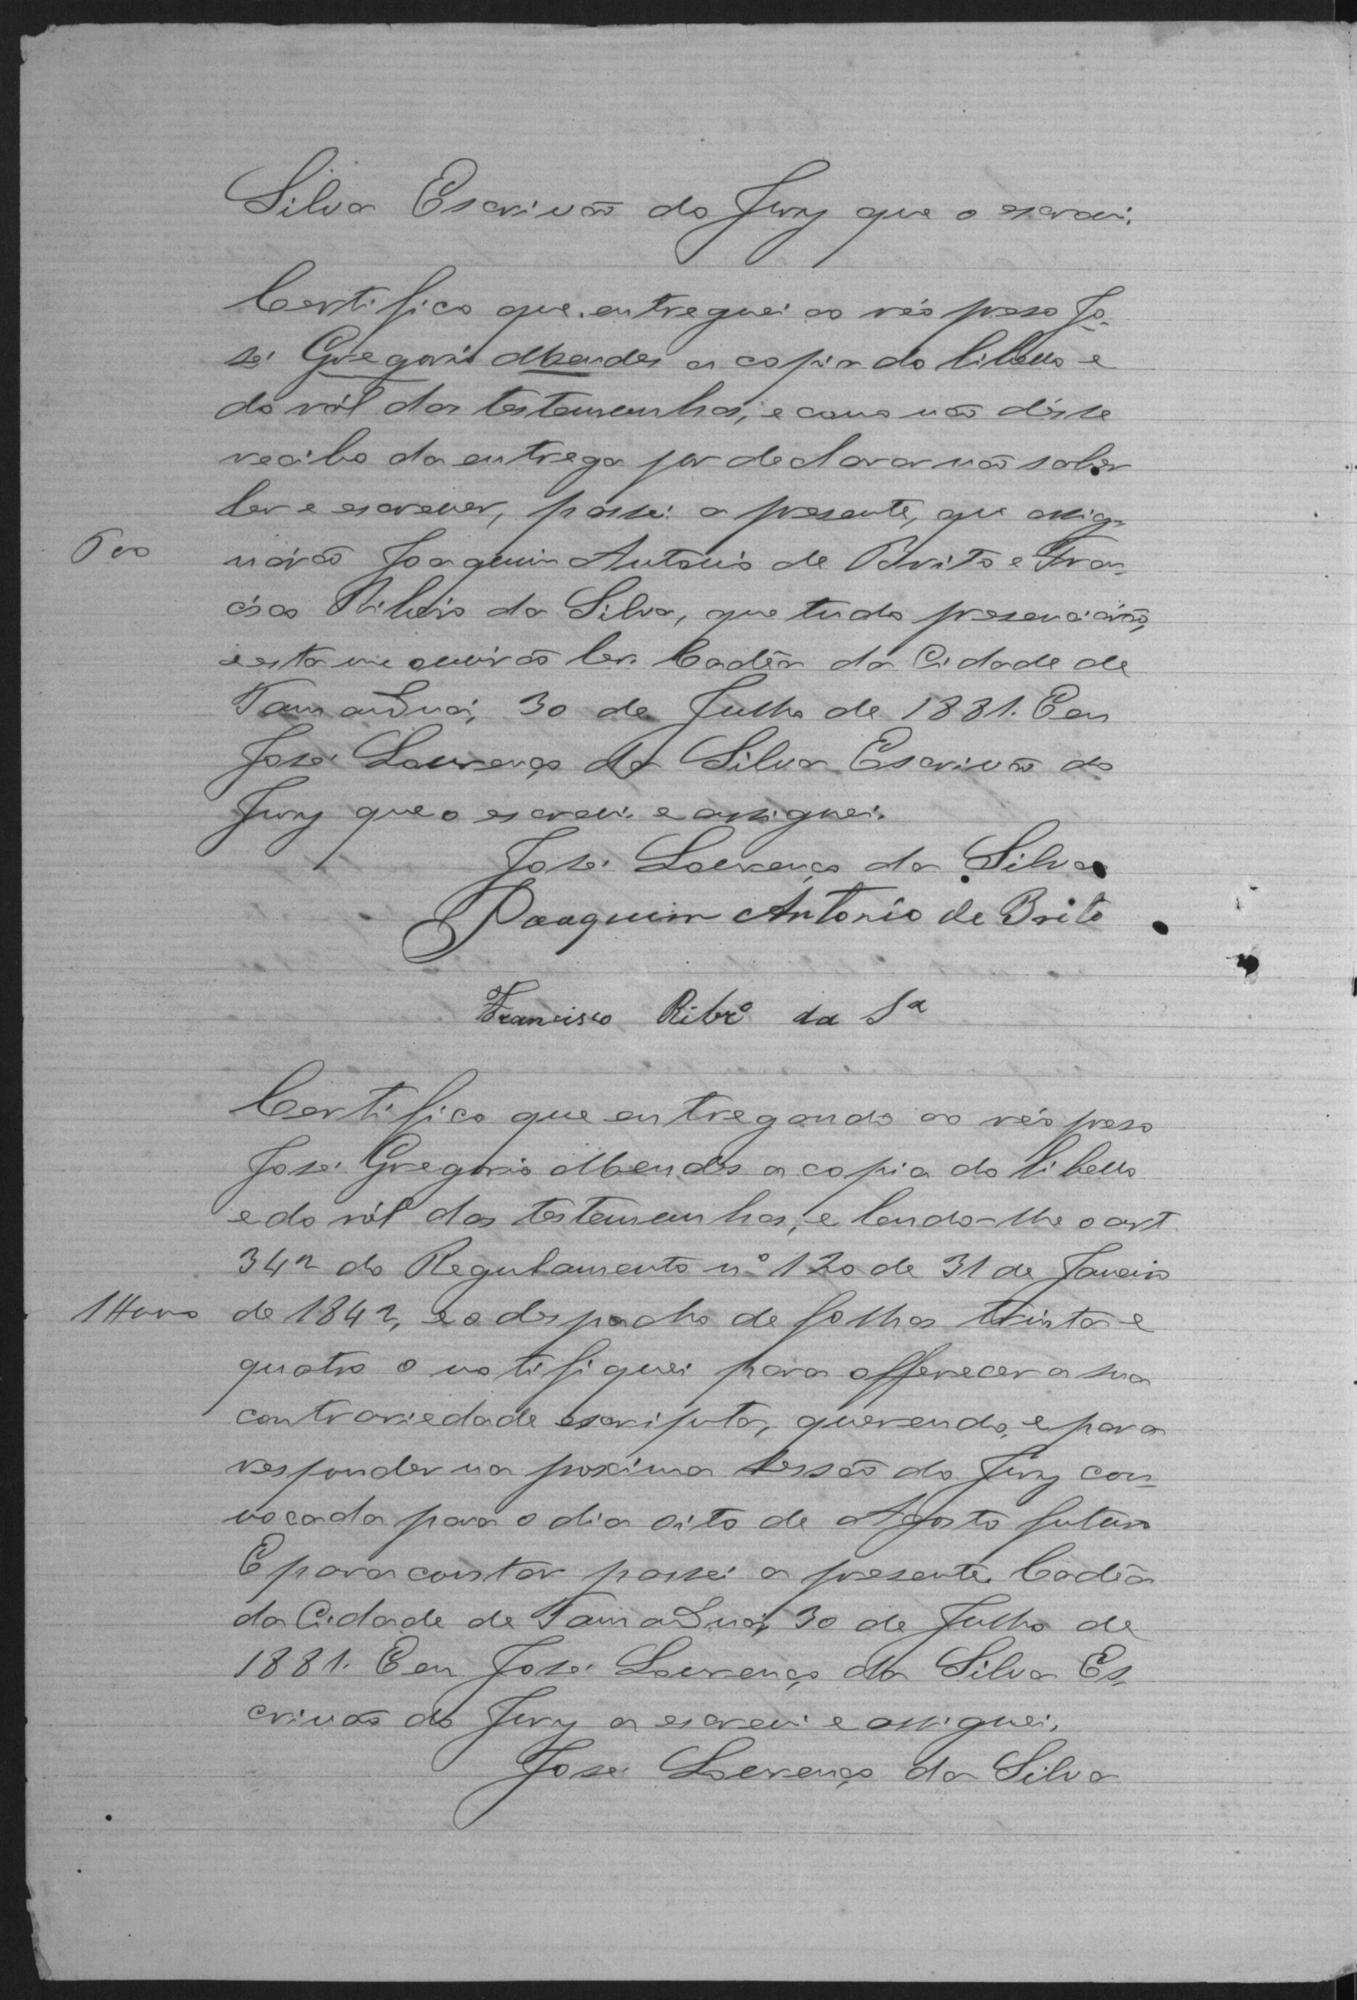 Silva Escrivão do Jury que o escrevi.
Certifico que entreguei ao réo preso Jo-
sé Gregorio Mendes a copia do libello e
do ról das testemunhas, e como não désse
recibo da entrega por declarar não saber
ler e escrever, passei a presente, que assig-
narão Joaquim Antonio de Brito e Fran-
cisco Ribeiro da Silva, que tudo presenciárão,
e esta me ouvirão ler. Cadêa da Cidade de
Tamanduá, 30 de Julho de 1881. Eu
José Lourenço da Silva Escrivão do
Jury que o escrevi e assignei.
José Lourenço da Silva
Joaquim Antonio de Brito
Francisco Ribrº da Sª
Certifico que entregando ao réo preso
José Gregorio Mendes a copia do libello
e do ról das testemunhas, e lendo-lhe o art
342 do Regulamento nº 120 de 31 de Janeiro
de 1842, e o despacho de folhas trinta e
quatro o notifiquei para offerecer a sua
contrariedade escripta, querendo, e para
responder na proxima sessão do Jury con-
vocada para o dia oito de Agosto futuro
E para constar passei a presente. Cadêa
da Cidade de Tamanduá, 30 de Julho de
1881. Eu José Lourenço da Silva Es-
crivão do Jury a escrevi e assignei.
José Lourenço da Silva